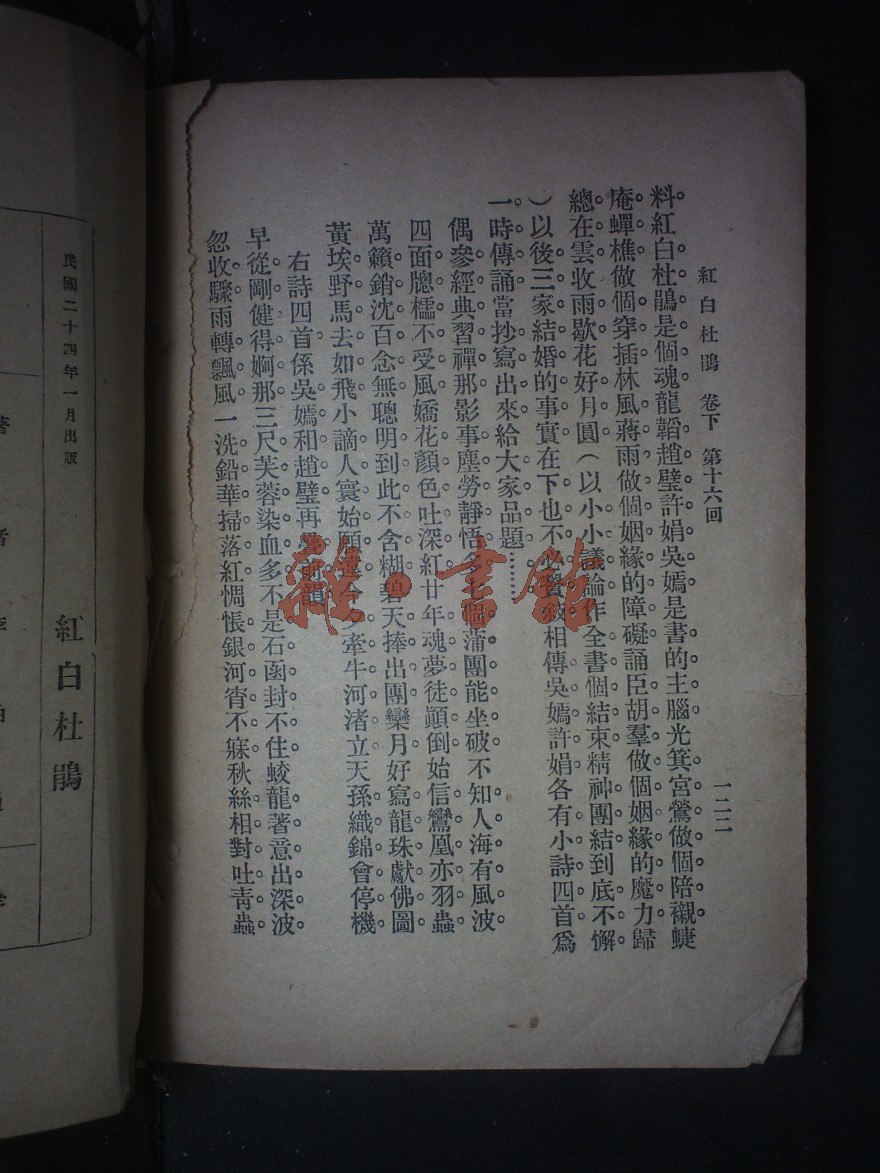 紅白杜鵑　卷下　第十六回
一二二
料紅白杜鵑是個魂龍韜趙璧許娟吳嫣是書的主腦光箕宮鶯做個陪襯蜨
庵蟬樵做個穿插林風蔣雨做個姻緣的障礙誦臣胡羣做個姻緣的魔力歸
總在雲收雨歇花好月圓（以小小議論作全書個結束精神團結到底不懈
）以後三家結婚的事實在下也不必贅敘相傳吳嫣許娟各有小詩四首爲
一時傳誦當抄寫出來給大家品題………
偶參經典習禪那影事塵勞靜悟多 蒲團能坐破不知人海有風波
四面牕櫺不受風嬌花顏色吐深紅廿年魂夢徒顚倒始信鸞凰亦羽蟲
萬籟銷沈百念無聰明到此不含糊碧天捧出團欒月好寫龍珠獻佛圖
黃埃野馬去如飛小謫人寰始願違今夕牽牛河渚立天孫織錦會停機
右詩四首係吳嫣和趙璧再疊前韻
早從剛健得婀那三尺芙蓉染血多不是石函封不住蛟龍著意出深波
忽收驟雨轉飄風一洗鉛華掃落紅惆悵銀河宵不寐秋絲相對吐青蟲
民國二十四年一月出版
紅白杜鵑
著
者
李
雜·書館